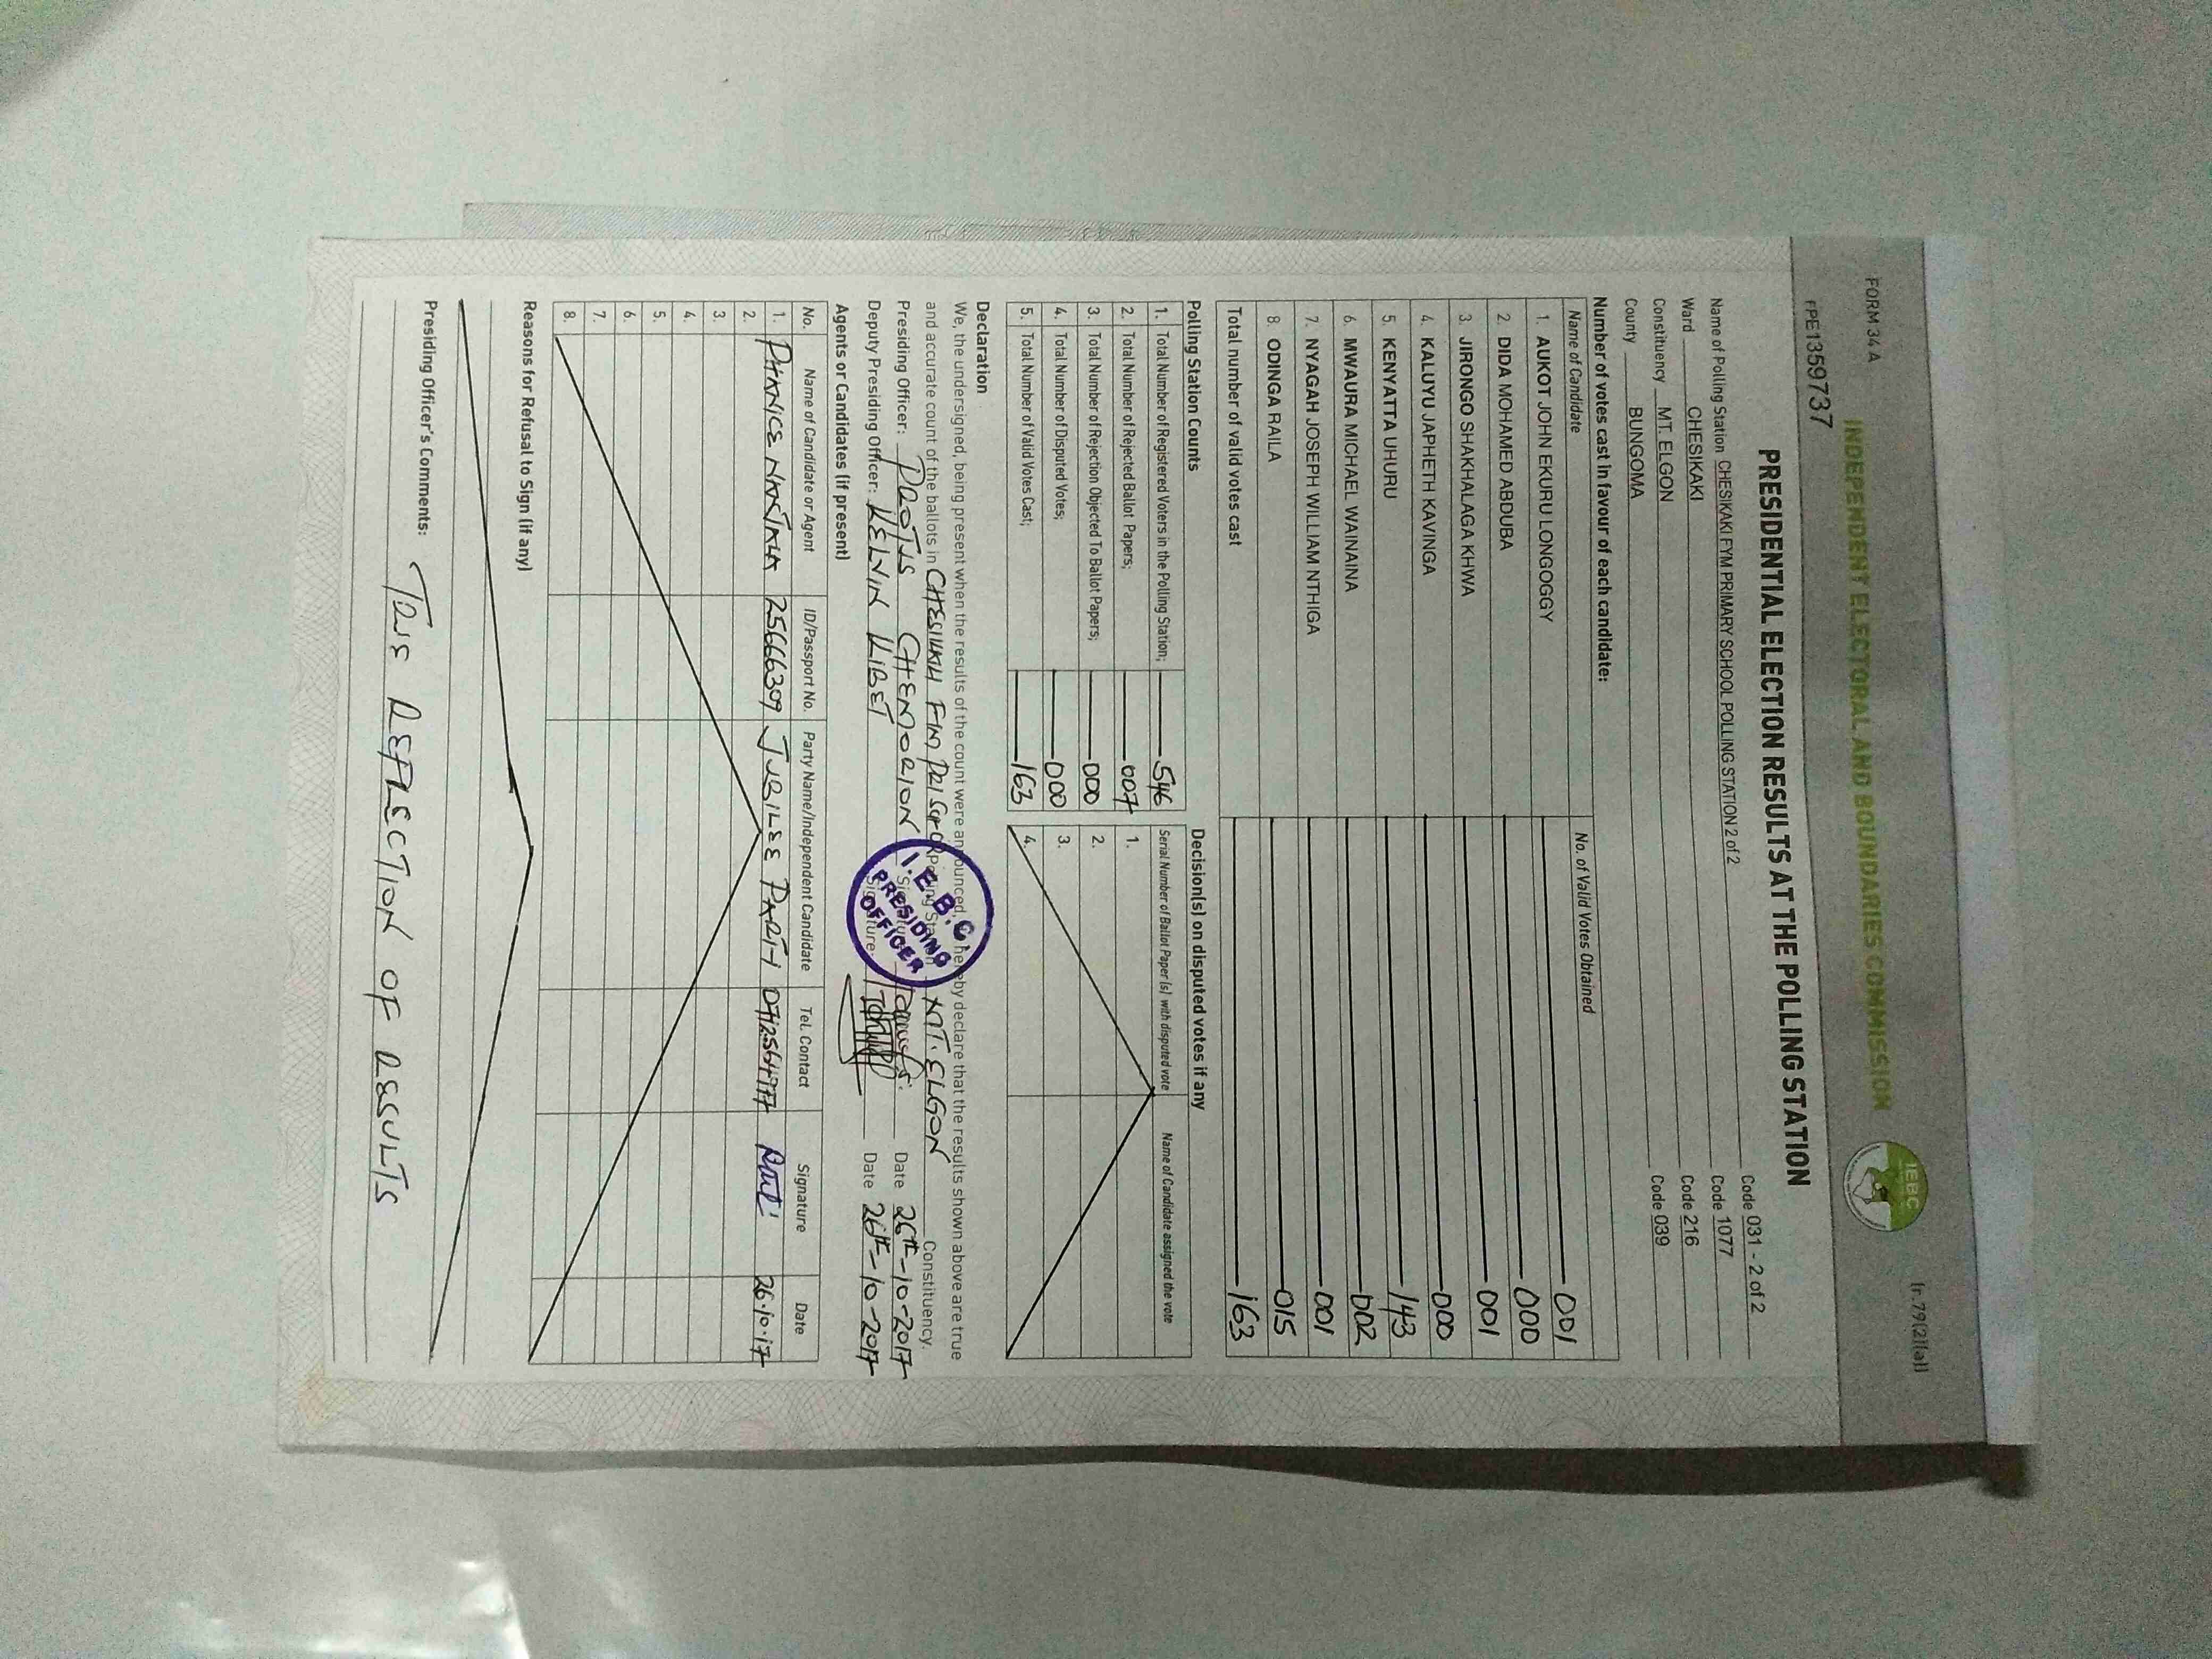 FORM 34 A
(r.79(2)(a))
INDEPENDENT ELECTORAL AND BOUNDARIES COMMISSION
IEBC
PE1359737
PRESIDENTIAL ELECTION RESULTS AT THE POLLING STATION
Name of Polling Station CHESIKAKI FYM PRIMARY SCHOOL POLLING STATION 2 of 2 Code 031 - 2 of 2
Ward CHESIKAKI Code 1077
Constituency MT. ELGON Code 216
County BUNGOMA Code 039
Number of votes cast in favour of each candidate:
Name of Candidate No. of Valid Votes Obtained
1. AUKOT JOHN EKURU LONGOGGY 001
2. DIDA MOHAMED ABDUBA 000
3. JIRONGO SHAKHALAGA KHWA 001
4. KALUYU JAPHETH KAVINGA 000
5. KENYATTA UHURU 143
6. MWAURA MICHAEL WAINAINA 002
7. NYAGAH JOSEPH WILLIAM NTHIGA 001
8. ODINGA RAILA 015
Total number of valid votes cast 163
Polling Station Counts
1. Total Number of Registered Voters in the Polling Station; 546
2. Total Number of Rejected Ballot Papers; 007
3. Total Number of Rejection Objected To Ballot Papers; 000
4. Total Number of Disputed Votes; 000
5. Total Number of Valid Votes Cast; 163
Decision(s) on disputed votes if any
Serial Number of Ballot Paper (s) with disputed vote Name of Candidate assigned the vote
1.
2.
3.
4.
Declaration
We, the undersigned, being present when the results of the count were announced, hereby declare that the results shown above are true
and accurate count of the ballots in CHESIKAKI FYM PRI SCH Polling Station MT. ELGON Constituency.
Presiding Officer: PROTUS CHEMORION Signature: Date 26th-10-2017
Deputy Presiding Officer: KELVIN KIBET Signature: Date 26th-10-2017
I.E.B.C
PRESIDING
OFFICER
Agents or Candidates (if present)
No. Name of Candidate or Agent ID/Passport No. Party Name/Independent Candidate Tel. Contact Signature Date
1. 25666309 JUBILEE PARTY 26.10.17
2.
3.
4.
5.
6.
7.
8.
Reasons for Refusal to Sign (if any)
Presiding Officer's Comments: THIS REFLECTION OF RESULTS